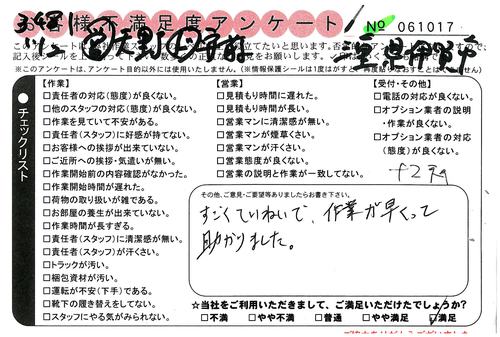 お客様不満足度アンケート
№ 061017
【作業】
□責任者の対応(態度)が良くない。
□他のスタッフの対応(態度)が良くない。
□作業を見ていて不安がある。
□責任者(スタッフ)に好感が持てない。
□お客様への挨拶が出来ていない。
□ご近所への挨拶・気遣いが無い。
□作業開始前の内容確認がなかった。
□作業開始時間が遅れた。
□荷物の取り扱いが雑である。
□お部屋の養生が出来ていない。
□作業時間が長すぎる。
□責任者(スタッフ)に清潔感が無い。
□責任者(スタッフ)が汗くさい。
□トラックが汚い。
□梱包資材が汚い。
□運転が不安(下手)である。
□靴下の履き替えをしてない。
□スタッフにやる気がみられない。
【営業】
□見積もり時間に遅れた。
□見積もり時間が長い。
□営業マンに清潔感が無い。
□営業マンが煙草くさい。
□営業マンが汗くさい。
□営業態度が良くない。
□営業の説明と作業が一致してない。
【受付・その他】
□電話の対応が良くない。
□オプション業者の説明
・作業が良くない。
□オプション業者の対応
(態度)が良くない。
チェックリスト
その他、ご意見・ご要望等ありましたらお書き下さい。
すごくていねいで、作業が早くって
助かりました。
☆当社をご利用いただきまして、ご満足いただけたでしょうか?
□不満 □やや不満 □普通 □やや満足 ☑満足